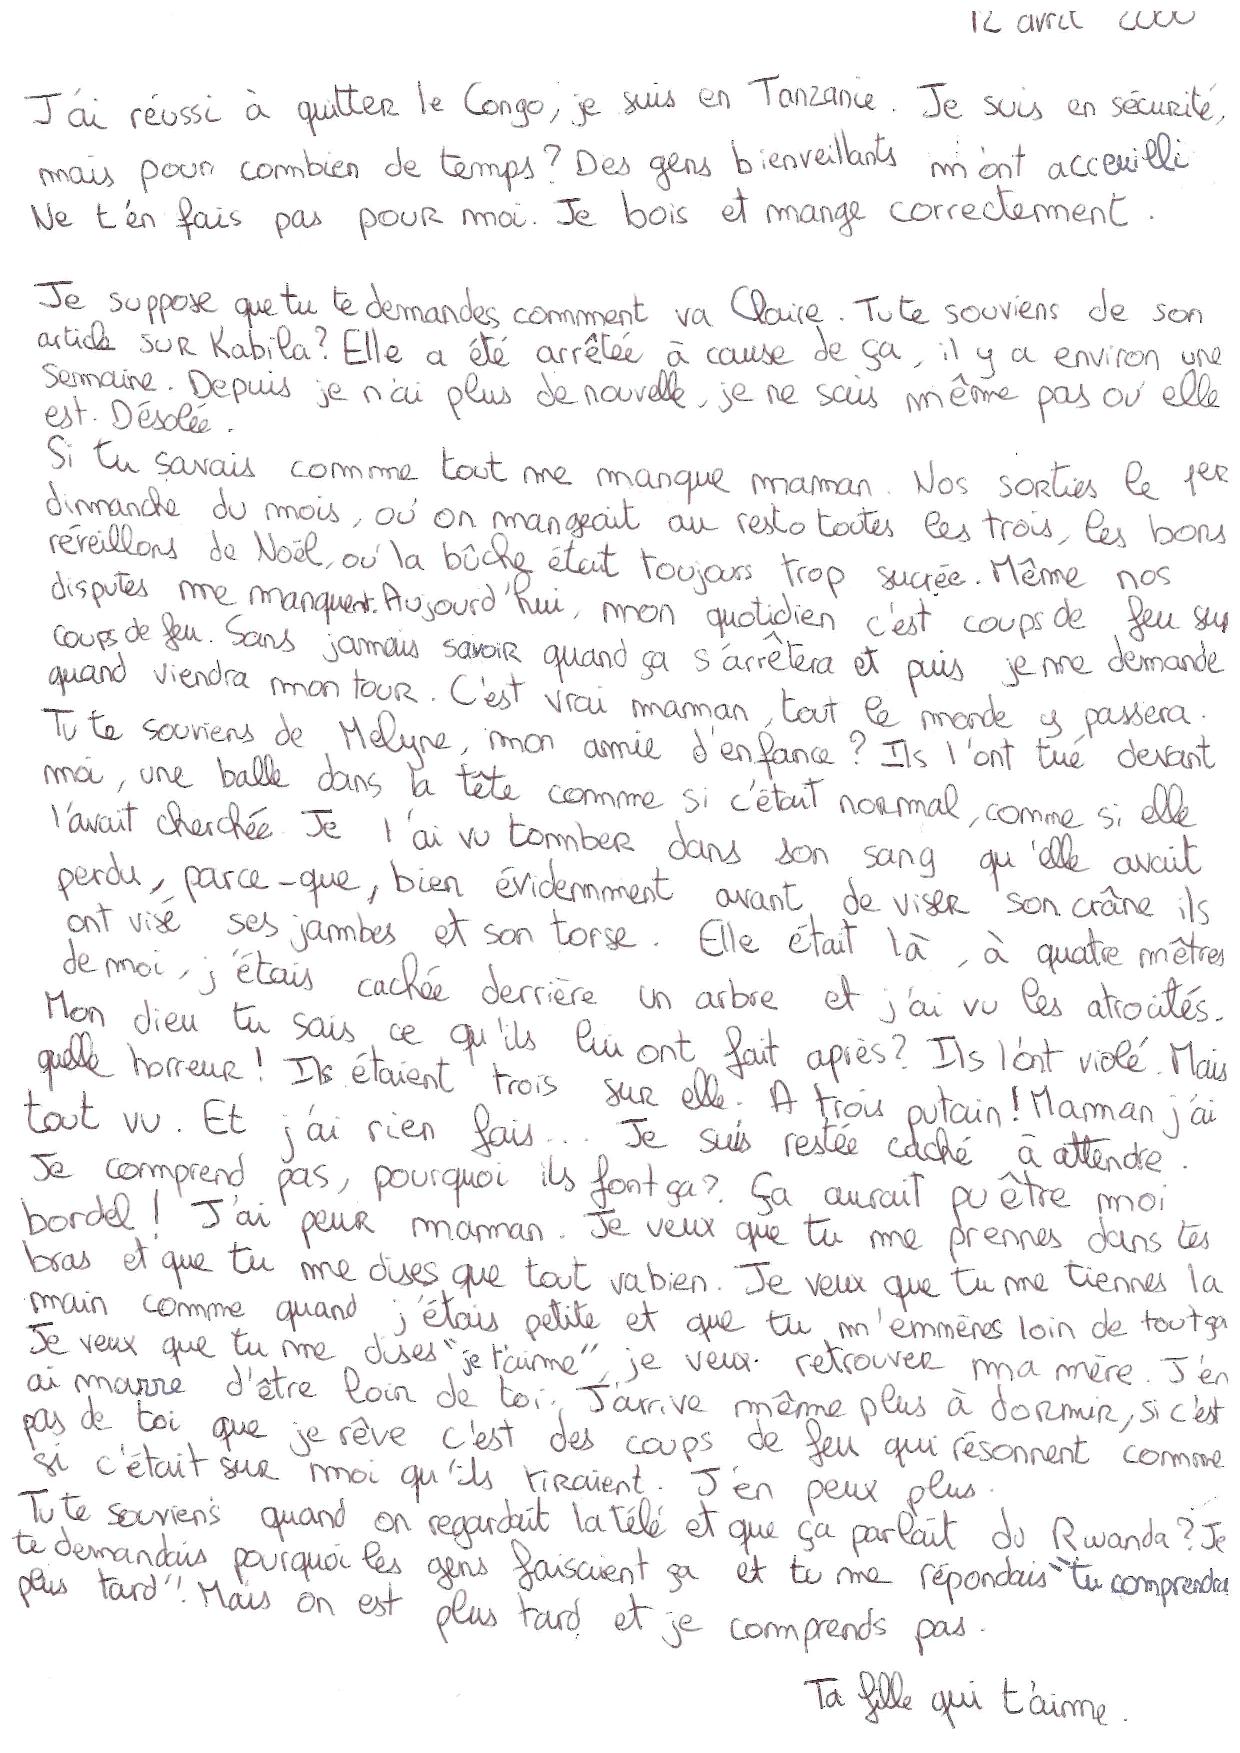 12 avril 2000
J'ai réussi à quitter le Congo, je suis en Tanzanie. Je suis en sécurité,
mais pour combien de temps? Des gens bienveillants m'ont acceuilli
Ne t'en fais pas pour moi. Je bois et mange correctement.
Je suppose que tu te demandes comment va Claire. Tu te souviens de son
article sur Kabila? Elle a été arrêtée à cause de ça, il y a environ une
semaine. Depuis je n'ai plus de nouvelle, je ne sais même pas où elle
est. Désolée.
Si tu savais comme tout me manque maman. Nos sorties le 1er
dimanche du mois, où on mangeait au resto toutes les trois, les bons
réveillons de Noël, où la bûche était toujours trop sucrée. Même nos
disputes me manquent. Aujourd'hui, mon quotidien c'est coups de feu sur
coups de feu. Sans jamais savoir quand ça s'arrêtera et puis je me demande
quand viendra mon tour. C'est vrai maman, tout le monde y passera.
Tu te souviens de Melyne, mon amie d'enfance? Ils l'ont tué devant
moi, une balle dans la tête comme si c'était normal, comme si elle
l'avait cherchée. Je l'ai vu tomber dans son sang qu'elle avait
perdu, parce-que, bien évidemment avant de viser son crâne ils
ont visé ses jambes et son torse. Elle était là, à quatre mètres
de moi, j'étais cachée derrière un arbre et j'ai vu les atrocités.
Mon dieu tu sais ce qu'ils lui ont fait après? Ils l'ont violé. Mais
quelle horreur! Ils étaient trois sur elle. A trois putain! Maman j'ai
tout vu. Et j'ai rien fais... Je suis restée caché à attendre.
Je comprend pas, pourquoi ils font ça? Ça aurait pu être moi
bordel! J'ai peur maman. Je veux que tu me prennes dans tes
bras et que tu me dises que tout va bien. Je veux que tu me tiennes la
main comme quand j'étais petite et que tu m'emmènes loin de tout ça
Je veux que tu me dises "je t'aime", je veux retrouver ma mère. J'en
ai marre d'être loin de toi. J'arrive même plus à dormir, si c'est
pas de toi que je rêve c'est des coups de feu qui résonnent comme
si c'était sur moi qu'ils tiraient. J'en peux plus.
Tu te souviens quand on regardait la télé et que ça parlait du Rwanda? Je
te demandais pourquoi les gens faisaient ça et tu me répondais "tu comprendra
plus tard"! Mais on est plus tard et je comprends pas.
Ta fille qui t'aime.